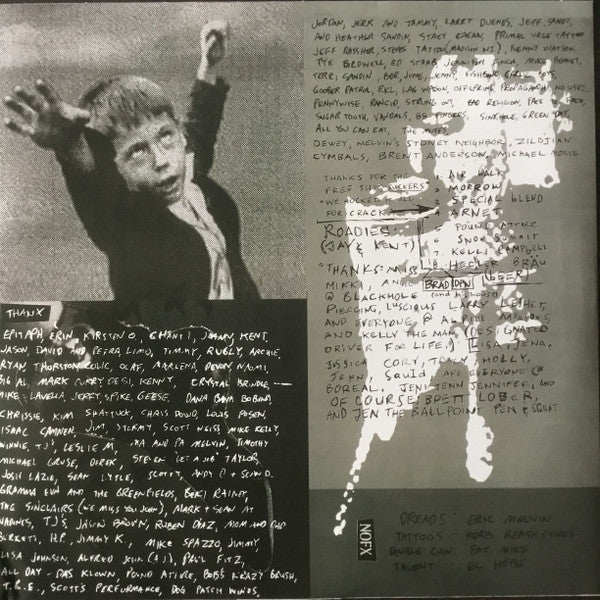 THANX
EPITAPH, ERIN, KIRSTEN O, CHANTI, JIMMY KENT,
JASON, DAVID AND PETRA, LIMO, TIMMY, RUGLY, ARCHIE,
RYAN, OLAF, MARLENA, DEVON NAOMI,
BIG AL, MARK CURRY DESI, KENNY, CRYSTAL
MIKE LAVELLA, JERRY, SPIKE, GEESE, DANA
CHRISSIE, KIM SHATTUCK, CHRIS DOWD, LOUIS POSEN,
ISAAC CAMNER, JIM, STORMY, SCOTT WEISS, MIKE KELLY,
WINNIE, TJ, LESLIE M, MA AND PA MELVIN, TIMOTHY
MICHAEL GRUSE, DEREK, STEVEN "GET A JOB" TAYLOR,
JOSH LAZIE, SEAN LYTLE, SCOTTY, ANDY
GRAMMA EVN AND THE GREENFIELDS, BEKI RAINEY,
THE SINCLAIRS (WE MISS YOU JOHN), MARK & SEAN AT
NADINES, TJ'S, JASON BROWN, RUBEN DIAZ, MOM AND DAD
BURKETT, H.P., JIMMY K, MIKE SPAZZO, JIMMY,
LISA JOHNSON, ALFRED JOHN (AJ), PAUL FITZ,
ALL DAY - DAS KLOWN, POUND ATTIRE, BOB'S KRAZY BRUSH,
T.B.E., SCOTT'S PERFORMANCE, DOG PATCH WINOS,
JORDAN, JERK AND TAMMY, LARRY DUENES, JEFF, SANDY,
AND HEATHER SANDIN, STACY EAGAN, PRIMAL URGE TATTOO
JEFF RASSHER, STEVES TATTOO (MADISON WI), KENNY WATSON
TYE BIRDWELL, ED STARR, JENNIFER FINCH, MIKE
TERRI SANDIN, BOB, JUNE, JENNY, FISHBONE
GOOBER PATROL, RKL, LAG WAGON, OFFSPRING, PROPAGANDHI, NO USE,
PENNYWISE, RANCID, STRUNG OUT, BAD RELIGION, FACE TO FACE,
SUGAR TOOTH, VANDALS, BS FINDERS, SINKHOLE, GREEN DAY,
ALL YOU CAN EAT, THE MUFFS.
DEWEY, MELVIN'S STONEY NEIGHBOR, ZILDJIAN
CYMBALS, BRENT ANDERSON, MICHAEL MORSE
THANKS FOR THE 1 AIR WALK
FREE SHIT SUCKERS 2 MORROW
"WE HOCKED IT ALL 3 SPECIAL BLEND
FOR CRACK" 4 ARNET
ROADIES: 5 POUND ATTIRE
(JAY & KENT) 6 SNOW SUMMIT
7 KELLY CAMPBELL
"THANKS" MISS 8 HEFLER BRAU
MIKKI, ANGE BRAD DAN (BEER)
@ BLACKHOLE (AND HIS HOUSE)
PIERCING, LUSCIOUS LARRY
AND EVERYONE @ ALPINE MEADOWS,
AND KELLY THE MAN (DESIGNATED
DRIVER FOR LIFE.) LISA, JENA,
JESSICA CORY, TRACY HOLLY,
JENNY SQUID AND EVERYONE @
BOREAL. JENI JENN JENNIFER, AND
OF COURSE BRETT LOBER,
AND JEN THE BALLPOINT PEN & SQUAT
NOFX
DREADS: ERIC MELVIN
TATTOOS: HERB REATH STINKS
DOUBLE CHIN: FAT MIKE
TALENT: EL HEFE